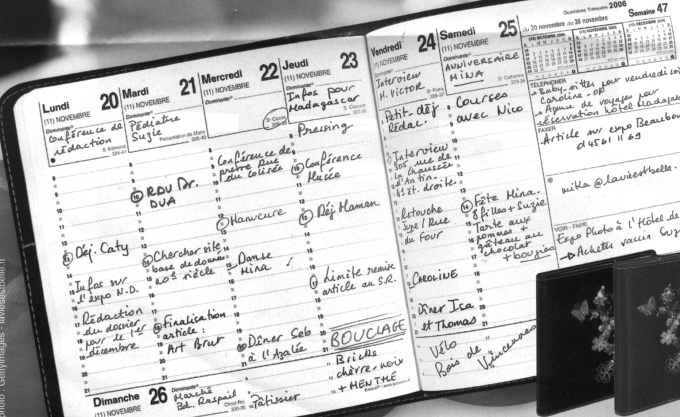 Quatrième Trimestre 2006
du 20 novembre au 26 novembre
Semaine 47
Lundi 20
(11) NOVEMBRE
Dominante
Conférence de
rédaction
S. Edmond
324-41
Déj. Caty
Infos sur
l'expo N.D.
Rédaction
du dossier
pour le 1er
décembre
Mardi 21
(11) NOVEMBRE
Dominante
Pédiatre
Suzie
Présentation de Marie
325-40
RDV Dr.
DUA
Chercher site
base de données
20e siècle
Finalisation
article :
Art Brut
Mercredi 22
(11) NOVEMBRE
Dominante
Ste Cécile
326-39
Conférence de
presse Rue
du Colisée
Manucure
Danse
Mina !
Dîner Seb
à l'Azalée
Jeudi 23
(11) NOVEMBRE
Dominante
Infos pour
Madagascar
S. Clément
Pressing
Conférence
Musée
Déj Maman
Limite remise
article au S.R.
BOUCLAGE
Bricks
chèvre-noix
+ MENTHE
Vendredi 24
(11) NOVEMBRE
Interview
M. VICTOR
Ste Flora
328-37
Petit-déj
Rédac.
Interview
305, rue de
la Chaussée
d'Antin.
4e ét. droite.
Retouche
Jupe / Rue
du Four
CAROLINE
Dîner Isa
et Thomas
Samedi 25
(11) NOVEMBRE
ANNIVERSAIRE
MINA
Courses
avec Nico
Fête Mina.
9 filles + Suzie
Tarte aux
pommes +
gâteau au
chocolat
+ bougies
Vélo
Bois de Vincennes
Dimanche 26
(11) NOVEMBRE
Dominante
Marché
Bd. Raspail
Christ Roi
330-35
Pâtissier
TELEPHONER
Baby-sitter pour vendredi soir
Caroline - OP
Agence de voyages pour
réservation hôtel Madagascar
FAXER
Article sur expo Beaubourg
mika@lavieestbelle.
VOIR - FAIRE
Expo Photo à l'Hôtel de
→ Acheter vaccin Suzie
photo : GettyImages - laviesestbelle.fr